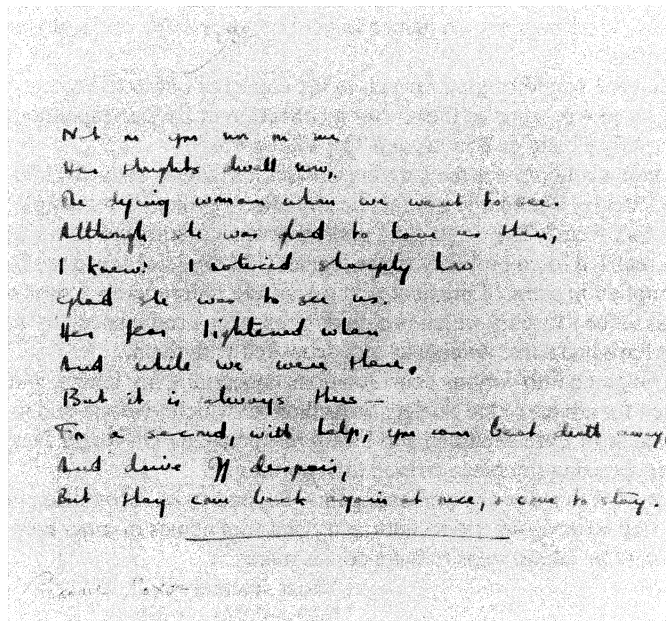 Not on you nor on me
Her thoughts dwell now,
The dying woman whom we went to see.
Although she was glad to have us there,
I know: I noticed sharply how
Glad she was to see us.
Her fear lightened when
And while we were there.
But it is always thus —
For a second, with help, you can beat death away,
And drive off despair,
But they come back again at once, & come to stay.